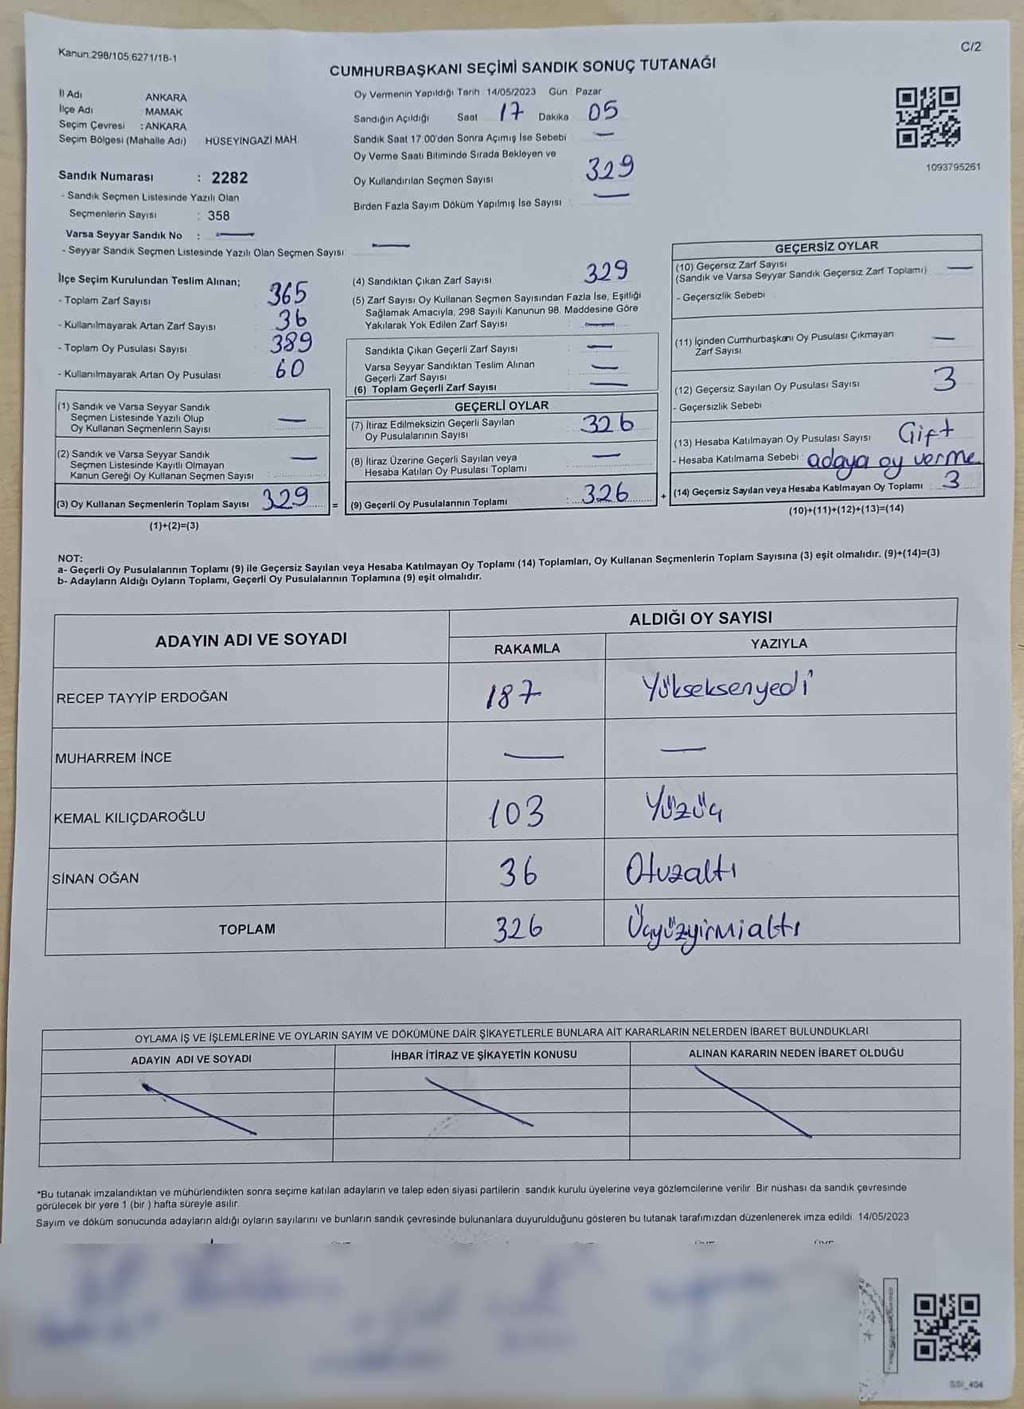 Kanun.298/105.6271/18-1
C/2
CUMHURBAŞKANI SEÇİMİ SANDIK SONUÇ TUTANAĞI
İl Adı ANKARA
İlçe Adı MAMAK
Seçim Çevresi : ANKARA
Seçim Bölgesi (Mahalle Adı) HÜSEYİNGAZİ MAH
Sandık Numarası : 2282
- Sandık Seçmen Listesinde Yazılı Olan
Seçmenlerin Sayısı : 358
Varsa Seyyar Sandık No : —
- Seyyar Sandık Seçmen Listesinde Yazılı Olan Seçmen Sayısı —
Oy Vermenin Yapıldığı Tarih : 14/05/2023 Gün : Pazar
Sandığın Açıldığı Saat 17 Dakika 05
Sandık Saat 17:00'den Sonra Açılmış İse Sebebi —
Oy Verme Saati Bitiminde Sırada Bekleyen ve
Oy Kullandırılan Seçmen Sayısı 329
Birden Fazla Sayım Döküm Yapılmış İse Sayısı —
1093795261
İlçe Seçim Kurulundan Teslim Alınan;
- Toplam Zarf Sayısı 365
- Kullanılmayarak Artan Zarf Sayısı 36
- Toplam Oy Pusulası Sayısı 389
- Kullanılmayarak Artan Oy Pusulası 60
(1) Sandık ve Varsa Seyyar Sandık
Seçmen Listesinde Yazılı Olup
Oy Kullanan Seçmenlerin Sayısı —
(2) Sandık ve Varsa Seyyar Sandık
Seçmen Listesinde Kayıtlı Olmayan
Kanun Gereği Oy Kullanan Seçmen Sayısı —
(3) Oy Kullanan Seçmenlerin Toplam Sayısı 329 =
(1)+(2)=(3)
(4) Sandıktan Çıkan Zarf Sayısı 329
(5) Zarf Sayısı Oy Kullanan Seçmen Sayısından Fazla İse, Eşitliği
Sağlamak Amacıyla, 298 Sayılı Kanunun 98. Maddesine Göre
Yakılarak Yok Edilen Zarf Sayısı —
Sandıkta Çıkan Geçerli Zarf Sayısı —
Varsa Seyyar Sandıktan Teslim Alınan
Geçerli Zarf Sayısı —
(6) Toplam Geçerli Zarf Sayısı —
GEÇERLİ OYLAR
(7) İtiraz Edilmeksizin Geçerli Sayılan
Oy Pusulalarının Sayısı 326
(8) İtiraz Üzerine Geçerli Sayılan veya
Hesaba Katılan Oy Pusulası Toplamı —
(9) Geçerli Oy Pusulalarının Toplamı : 326 +
GEÇERSİZ OYLAR
(10) Geçersiz Zarf Sayısı
(Sandık ve Varsa Seyyar Sandık Geçersiz Zarf Toplamı) —
- Geçersizlik Sebebi
(11) İçinden Cumhurbaşkanı Oy Pusulası Çıkmayan
Zarf Sayısı —
(12) Geçersiz Sayılan Oy Pusulası Sayısı 3
- Geçersizlik Sebebi
(13) Hesaba Katılmayan Oy Pusulası Sayısı Çift
- Hesaba Katılmama Sebebi : adaya oy verme
(14) Geçersiz Sayılan veya Hesaba Katılmayan Oy Toplamı : 3
(10)+(11)+(12)+(13)=(14)
NOT:
a- Geçerli Oy Pusulalarının Toplamı (9) ile Geçersiz Sayılan veya Hesaba Katılmayan Oy Toplamı (14) Toplamları, Oy Kullanan Seçmenlerin Toplam Sayısına (3) eşit olmalıdır. (9)+(14)=(3)
b- Adayların Aldığı Oyların Toplamı, Geçerli Oy Pusulalarının Toplamına (9) eşit olmalıdır.
ADAYIN ADI VE SOYADI ALDIĞI OY SAYISI
RAKAMLA YAZIYLA
RECEP TAYYİP ERDOĞAN 187 Yükseksenyedi
MUHARREM İNCE — —
KEMAL KILIÇDAROĞLU 103 Yüzüç
SİNAN OĞAN 36 Otuzaltı
TOPLAM 326 Üçyüzyirmialtı
OYLAMA İŞ VE İŞLEMLERİNE VE OYLARIN SAYIM VE DÖKÜMÜNE DAİR ŞİKAYETLERLE BUNLARA AİT KARARLARIN NELERDEN İBARET BULUNDUKLARI
ADAYIN ADI VE SOYADI İHBAR İTİRAZ VE ŞİKAYETİN KONUSU ALINAN KARARIN NEDEN İBARET OLDUĞU
*Bu tutanak imzalandıktan ve mühürlendikten sonra seçime katılan adayların ve talep eden siyasi partilerin sandık kurulu üyelerine veya gözlemcilerine verilir. Bir nüshası da sandık çevresinde
görülecek bir yere 1 (bir ) hafta süreyle asılır.
Sayım ve döküm sonucunda adayların aldığı oyların sayılarını ve bunların sandık çevresinde bulunanlara duyurulduğunu gösteren bu tutanak tarafımızdan düzenlenerek imza edildi. 14/05/2023
SSI_404